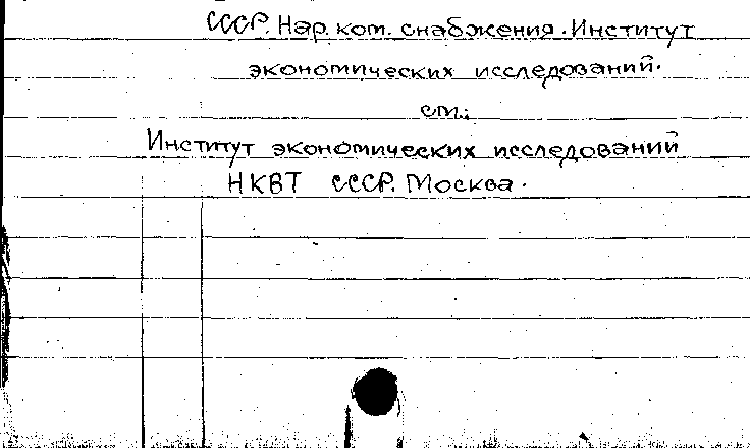 СССР. Нар. ком. снабжения. Институт
экономических исследований.
см.:
Институт экономических исследований
НКВТ СССР. Москва.